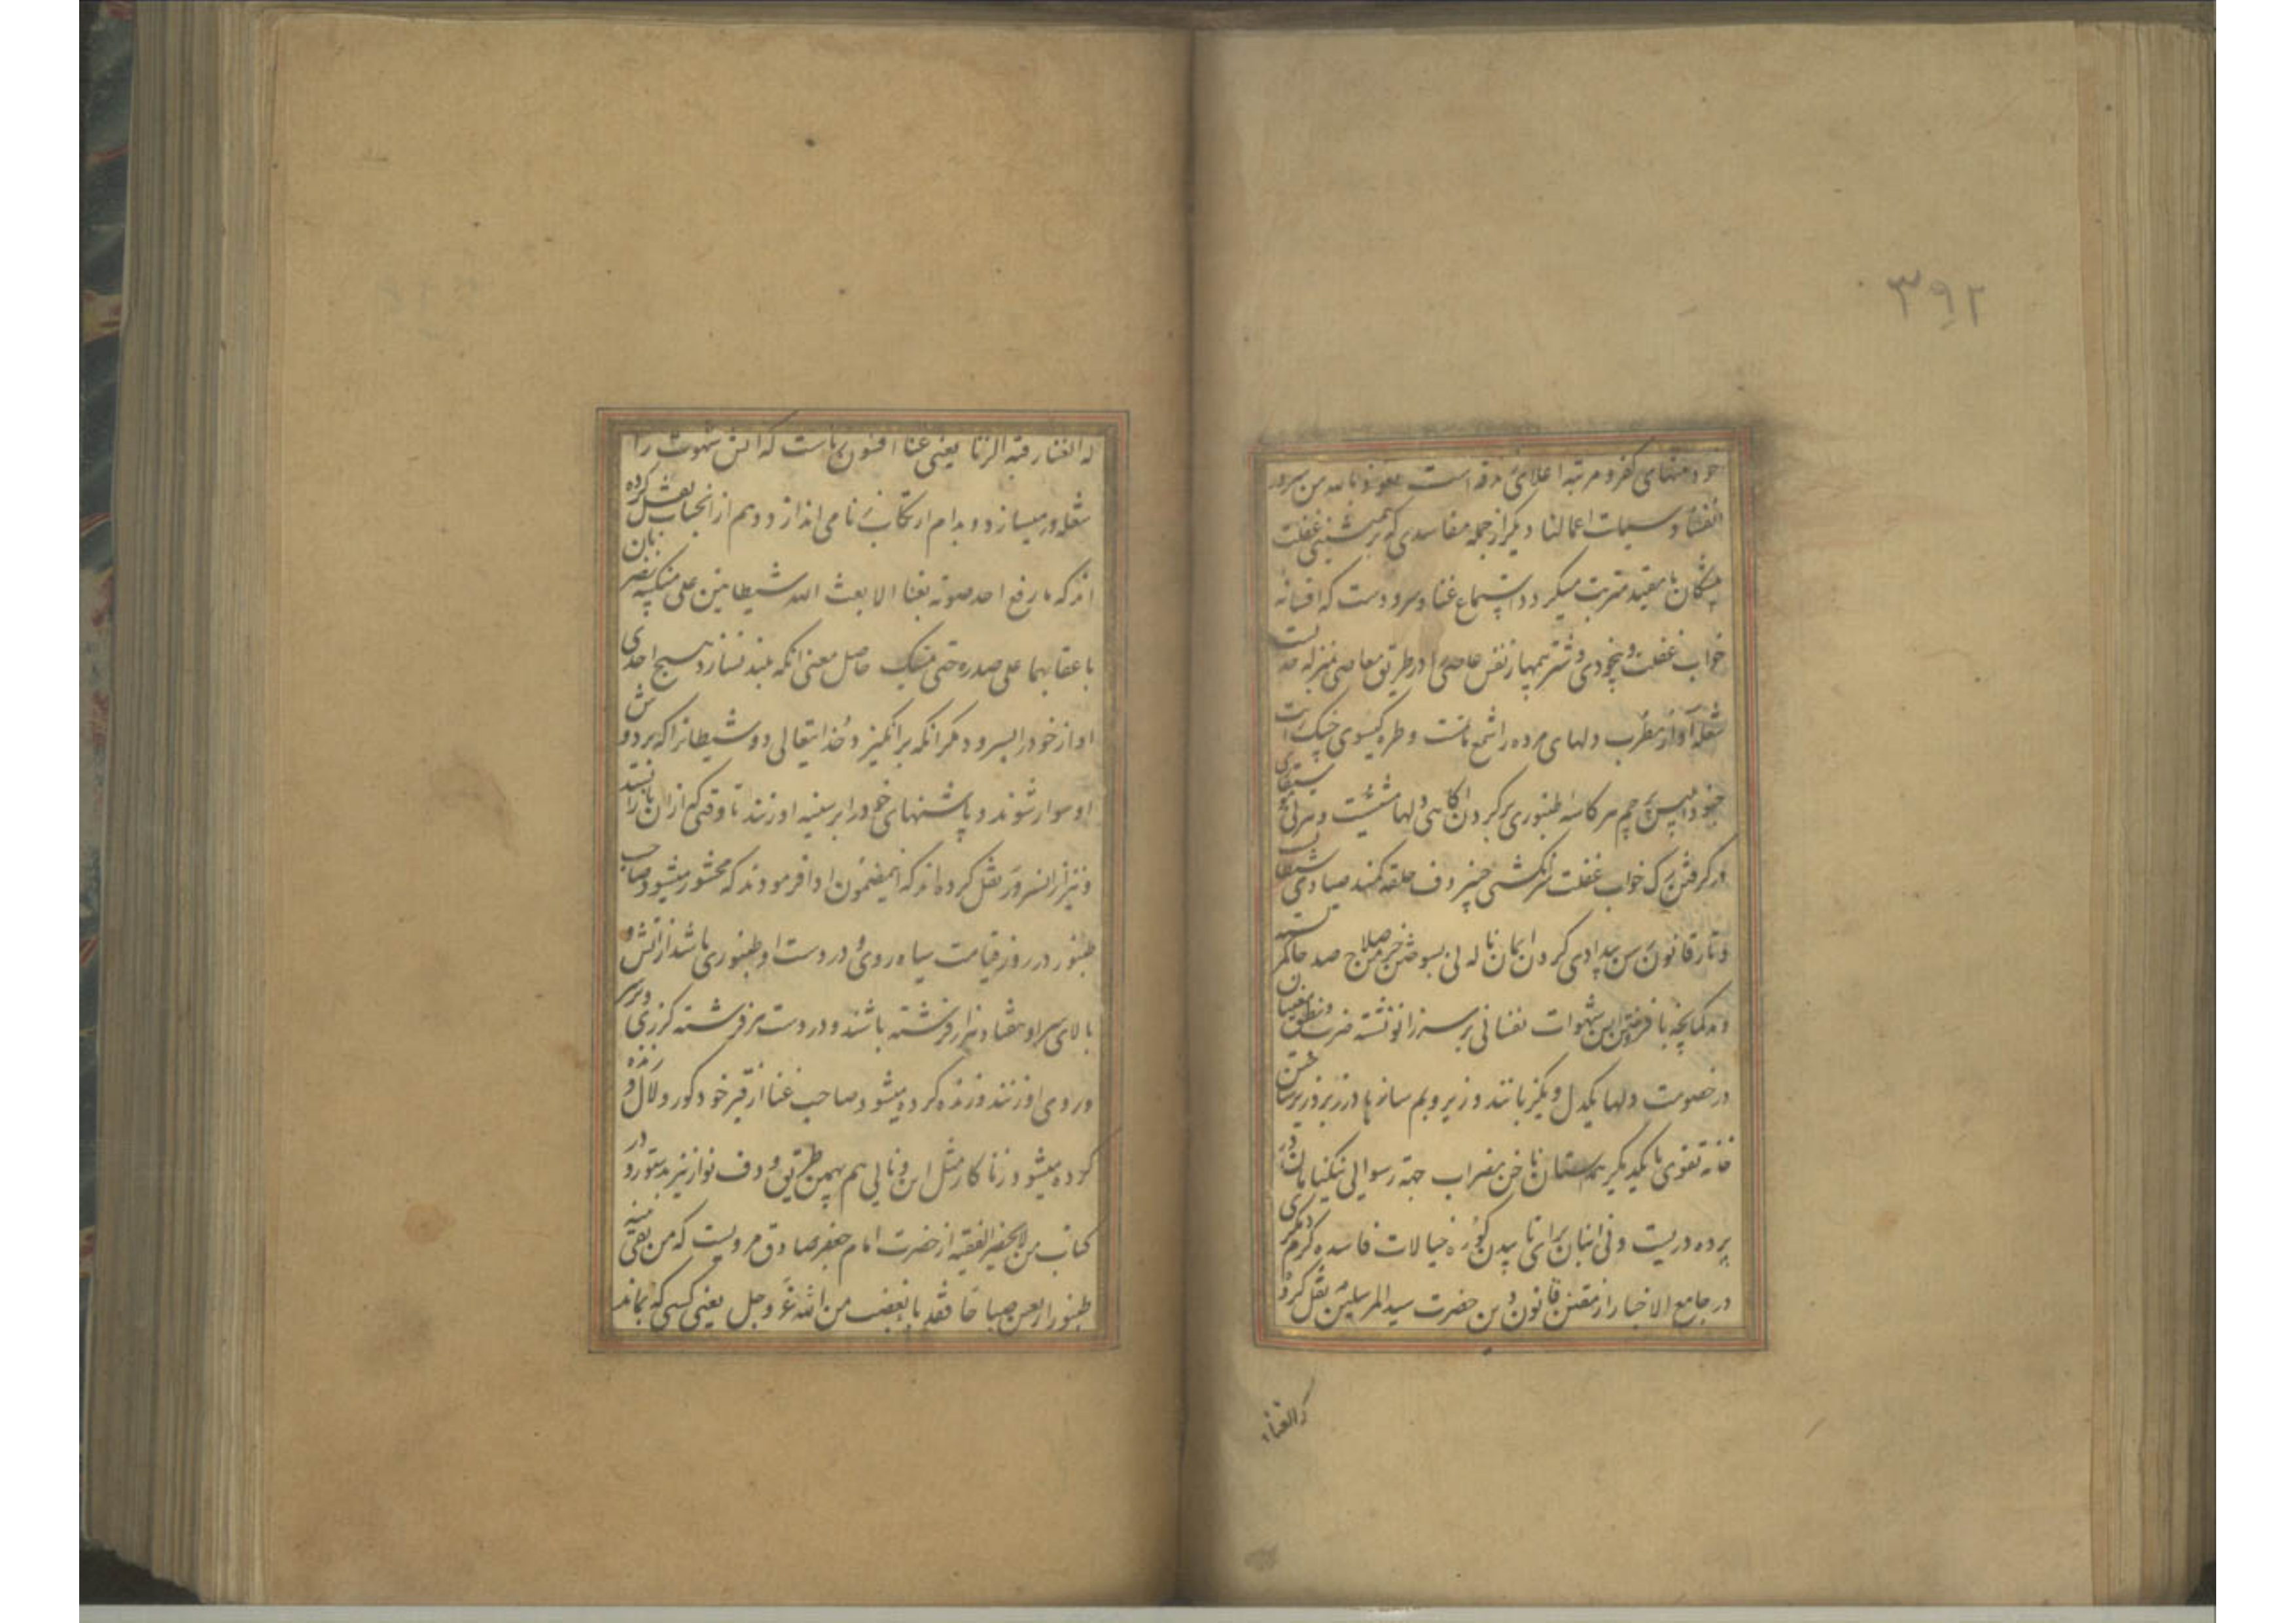 ۳۹۲
خود منتهای کفر و مرتبه اعلای زندقه است نعوذ بالله من شرور
انفسنا و سیات اعمالنا دیگر از جمله مفاسدی که بر همنشینی غفلت
پیشگان نامقید مترتب میگردد استماع غنا و سرودست که افسانه
خواب غفلت و بیخودی و شتر بیمهار نفس عاصی را در طریق معاصی بمنزله حدیست
شعله آواز مطرب دلهای مرده را شمع ماتمست و طره گیسوی چنگ رایت
پرچم هر کاسه طنبوری بر گردان دلها و هر نی
در گرفتن رگ خواب غفلت سرانگشتی چنبر دف حلقه کمند صیادی
و تار قانون بیدادی گردان ایمان ناله نی بسوختن خرمن صلاح صد
و هر کمانچه با فروختن آتش شهوات نفسانی بر سر زانو نشسته
در خصومت دلها یکدل و یکزبانند و زیر و بم سازها در زیر و زبر ساختن
خانه تقوی با یکدیگر همدستان ناخن مضراب جهة رسوایی نیکنامان در
پرده دریست و نی انبان برای تابیدن کوره خیالات فاسده گرم
در جامع الاخبار از مقنن قانون دین حضرت سید المرسلین نقل کرده
که الغناء
که الغنا رقیة الزنا یعنی غنا افسون زناست که آتش شهوت را
شعله ور میسازد و بدام ارتکاب زنا می اندازد و هم از انجناب نقل کرده
اند که ما رفع احد صوته بغنا الا بعث الله شیطانین علی منکبیه یضربان
باعقابهما علی صدره حتی یمسک حاصل معنی آنکه بلند نسازد هیچ احدی
اواز خود را بسرود مگر انکه برانگیزد خدایتعالی دو شیطانرا که بر دوش
او سوار شوند و پاشنهای خود را بر سینه او زنند تا وقتی که از ان باز ایستد
و نیز از انسرور نقل کرده اند که اینمضمون ادا فرمودند که محشور میشود صاحب
طنبور در روز قیامت سیاه روی و در دست او طنبوری باشد از آتش و
بالای سر او هفتاد هزار فرشته باشند و در دست هر فرشته گرزی که بر سر
و روی او زنند و زنده کرده میشود صاحب غنا از قبر خود کور و لال و
کرده میشود زنا کار مثل این و نایی هم بهمین طریق و دف نواز نیز بدستور و در
کتاب من لا یحضر الفقیه از حضرت امام جعفر صادق مرویست که من بقی فی بیته
طنبور اربعین صباحا فقد باء بغضب من الله عز و جل یعنی کسی که بماند